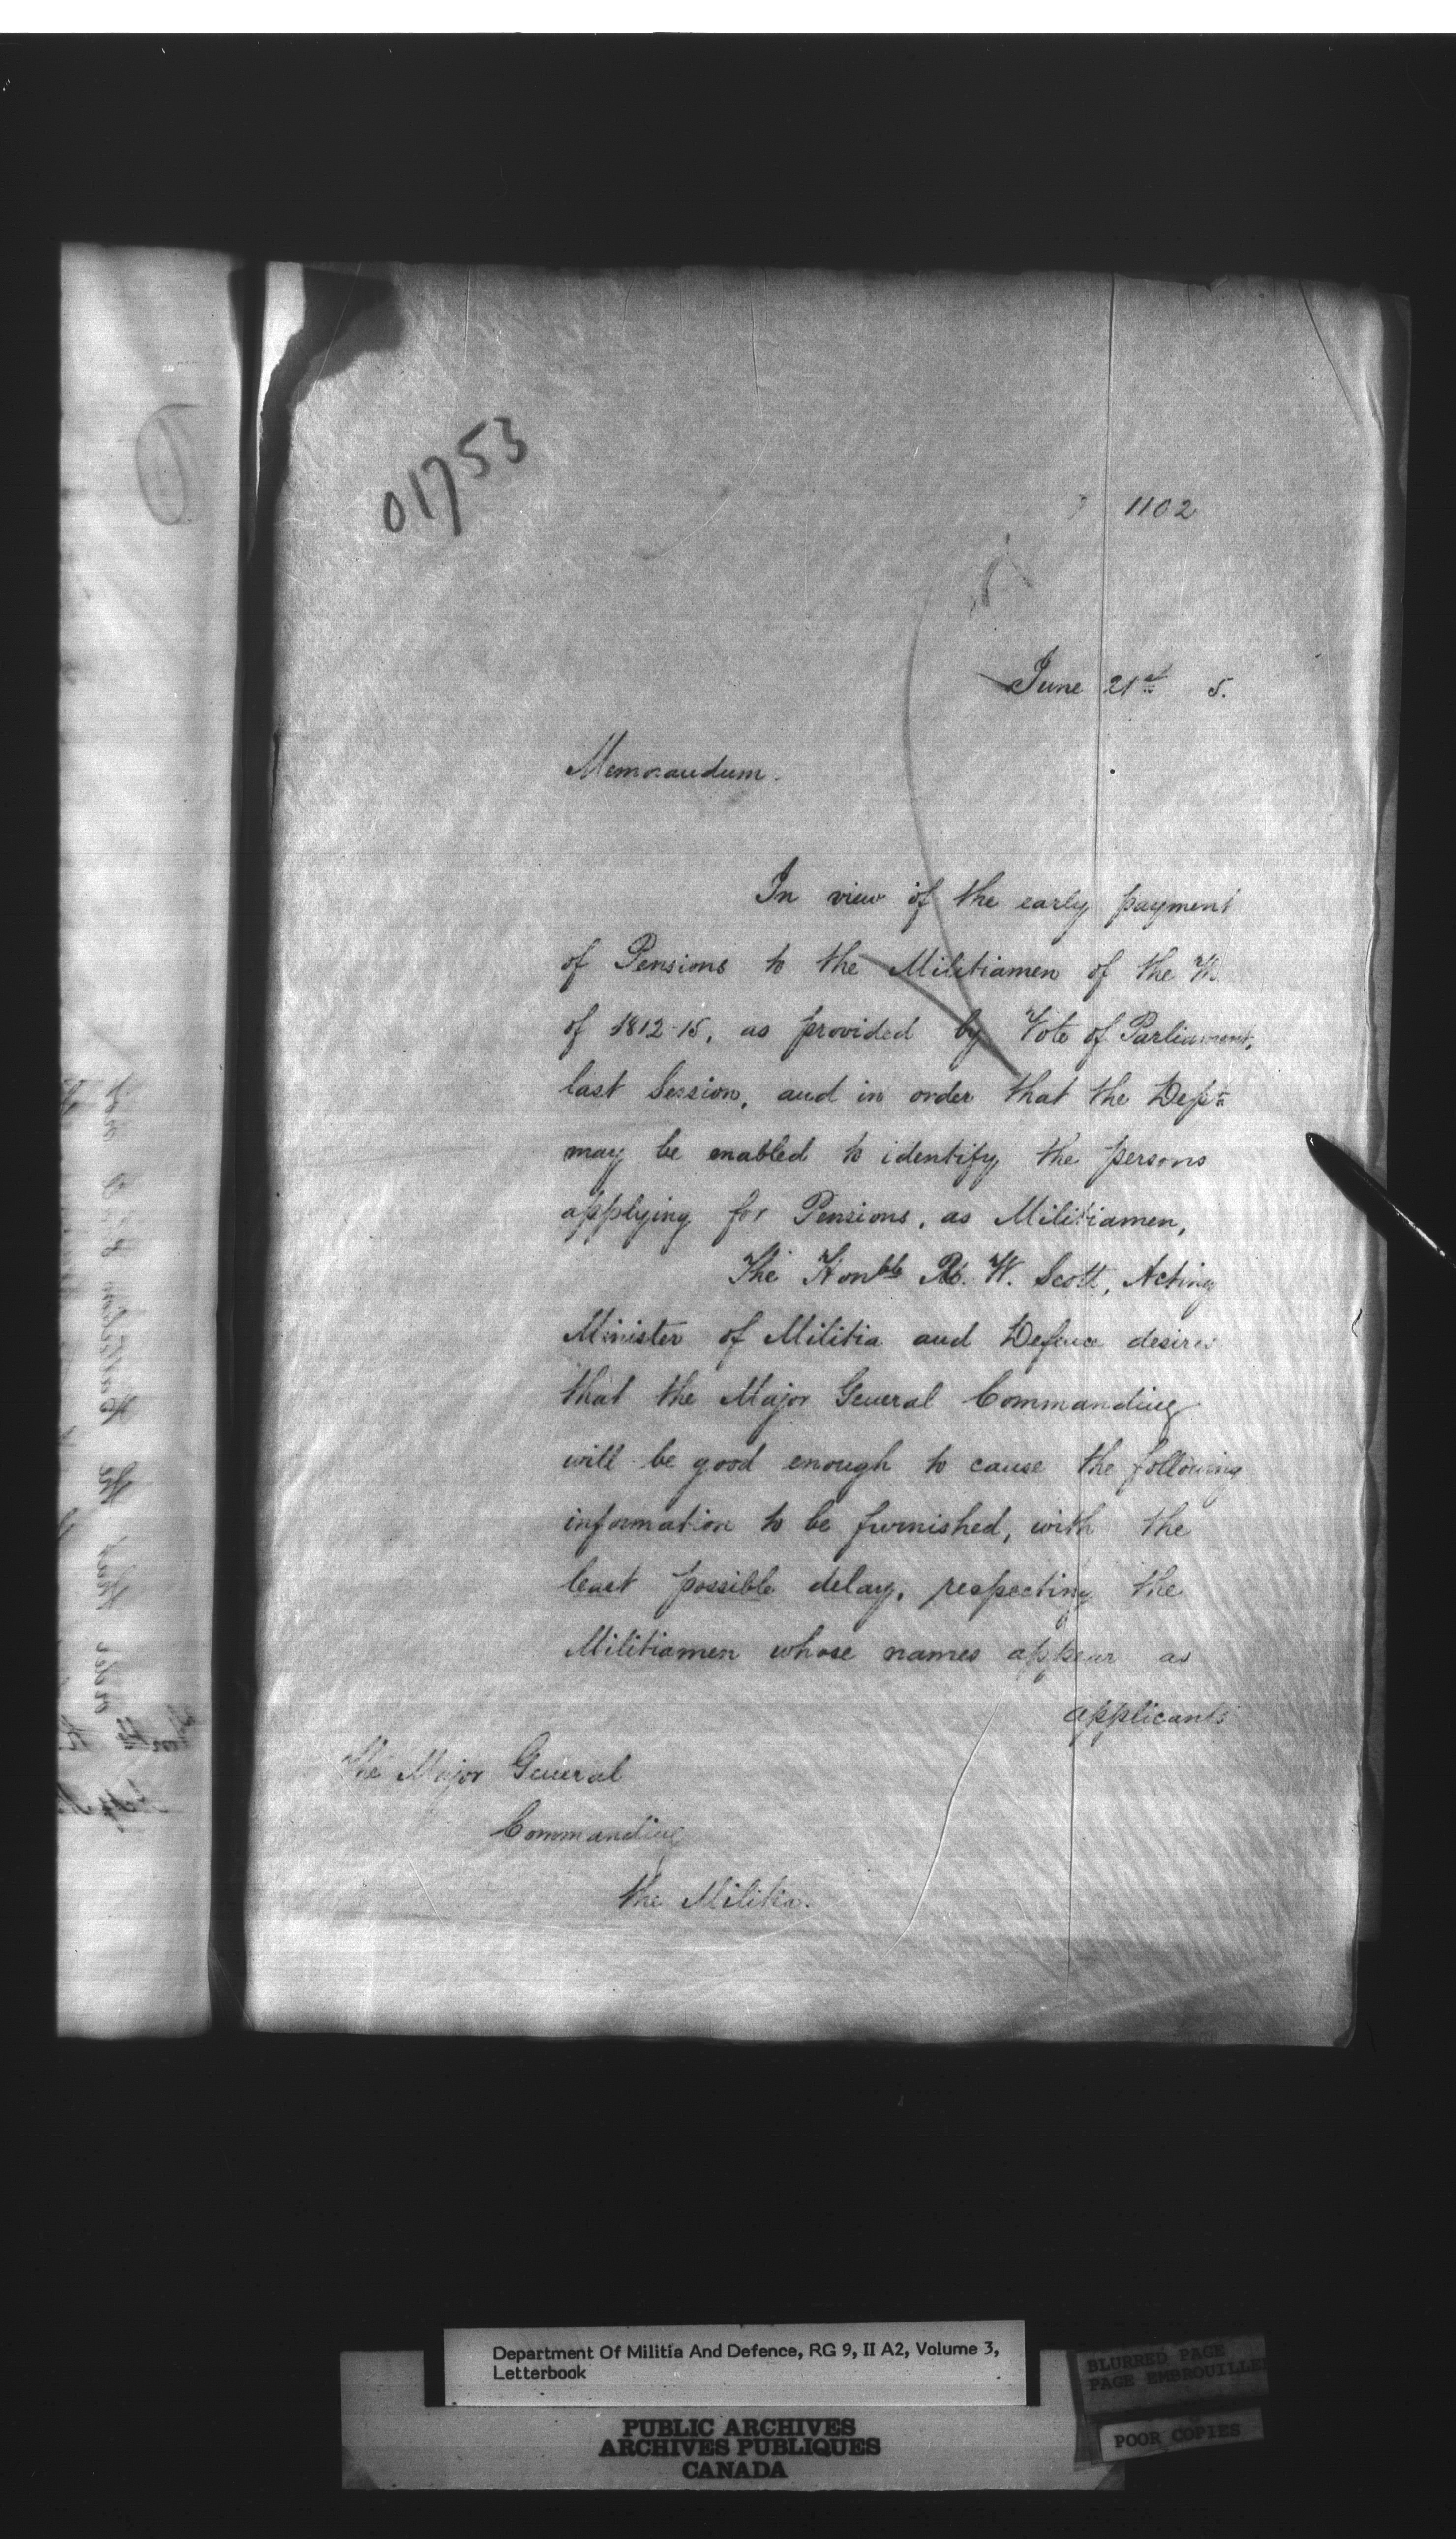 01753
1102
June 21st 5.
Memorandum.
In view of the early payment
of Pensions to the Militiamen of the W
of 1812-15, as provided by Vote of Parliament,
last Session, and in order that the Dept
may be enabled to identify the persons
applying for Pensions, as Militiamen,
The Honble R. W. Scott, Acting
Minister of Militia and Defence desires
that the Major General Commanding
will be good enough to cause the following
information to be furnished, with the
least possible delay, respecting the
Militiamen whose names appear as
applicants
The Major General
Commanding
the Militia.
Department Of Militia And Defence, RG 9, II A2, Volume 3,
Letterbook
PUBLIC ARCHIVES
ARCHIVES PUBLIQUES
CANADA
BLURRED PAGE
PAGE EMBROUILLEE
POOR COPIES